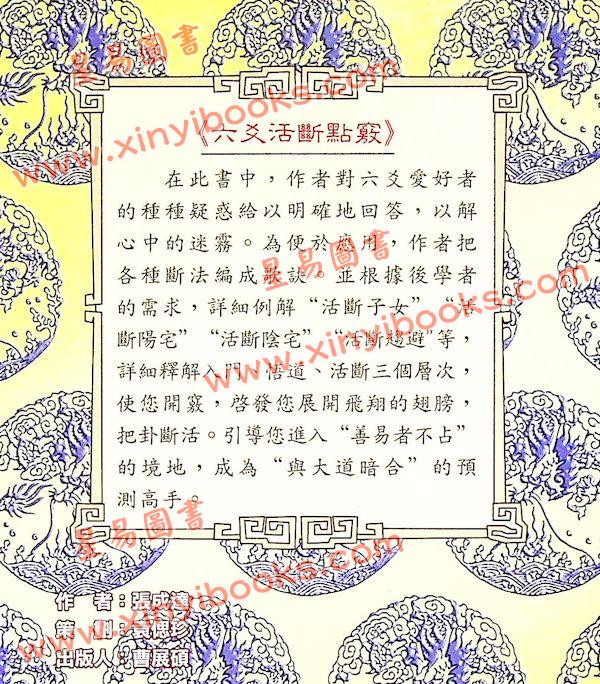 星易圖書
www.xinyibooks.com
《六爻活斷點竅》
在此書中，作者對六爻愛好者
的種種疑惑給以明確地回答，以解
心中的迷霧。為便於應用，作者把
各種斷法編成歌訣。並根據後學者
的需求，詳細例解“活斷子女”“活
斷陽宅”“活斷陰宅”“活斷趨避”等，
詳細釋解入門、悟道、活斷三個層次，
使您開竅，啓發您展開飛翔的翅膀，
把卦斷活。引導您進入“善易者不占”
的境地，成為“與大道暗合”的預
測高手。
星易圖書
www.xinyibooks.com
星易圖書
www.xinyibooks.com
作　者：張成達
策　劃：
出版人：曹展碩